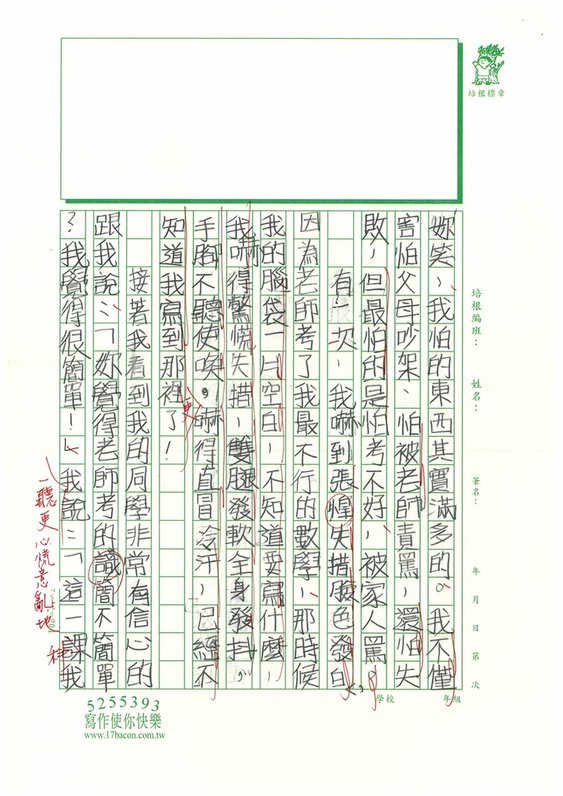 培根標章
培根編班：
姓名：
筆名：
年 月 日 第 次
學校 年級
妳笑，我怕的東西其實滿多的。我不僅
害怕父母吵架、怕被老師責罵，還怕失
敗，但最怕的是怕考不好，被家人罵。
有一次，我嚇到張惶失措臉色發白，
因為老師考了我最不行的數學，那時候
我的腦袋一片空白，不知道要寫什麼，
我嚇得驚慌失措，雙腿發軟全身發抖，
手腳不聽使喚，嚇得直冒冷汗，已經不
知道我寫到那裡了！
接著我看到我的同學非常有信心的
跟我說：「妳覺得老師考的識簡不簡單
？我覺得很簡單！」我說：「這一課我
更
一聽更心慌意亂地
科
5255393
寫作使你快樂
www.17bacon.com.tw